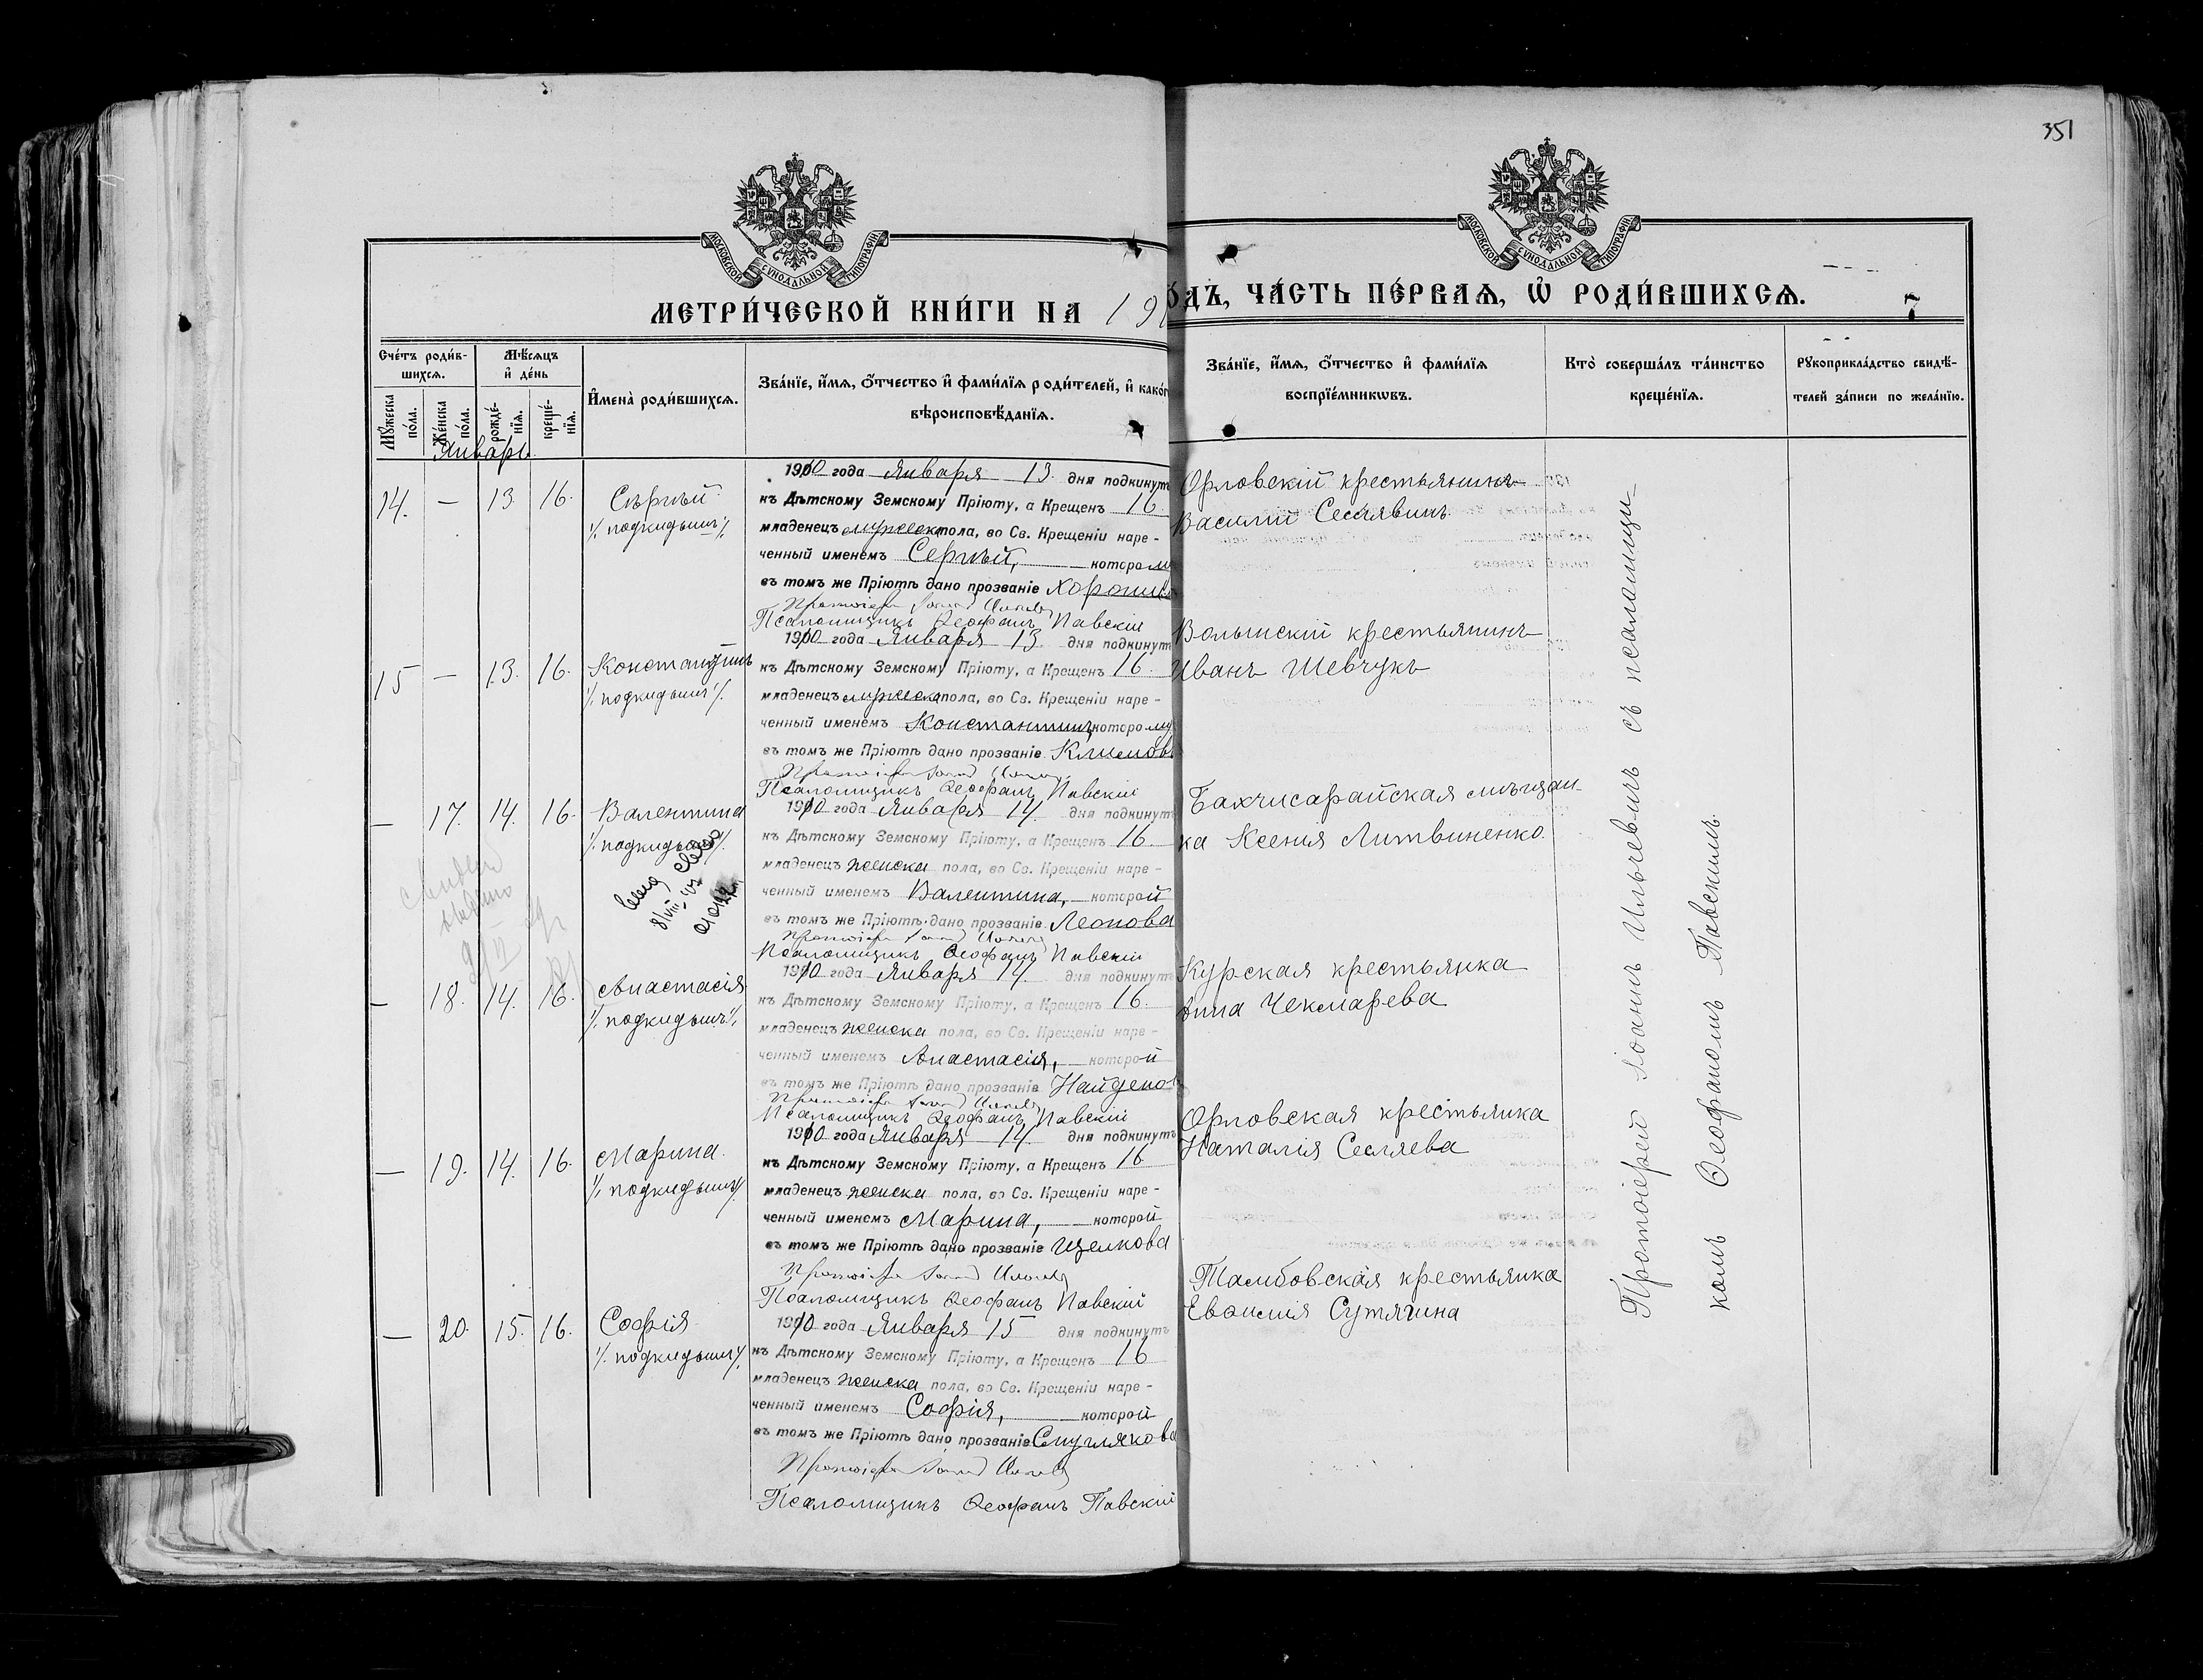 351
МОСКОВСКОЙ СѴНОДАЛЬНОЙ ТИПОГРАФІИ
МОСКОВСКОЙ СѴНОДАЛЬНОЙ ТИПОГРАФІИ
МЕТРИ́ЧЕСКОЙ КНИ́ГИ НА 191
О́ДЪ, ЧА́СТЬ ПЕ́РВАѦ, Ѡ҆ РОДИ́ВШИХСѦ. 7
Сче́тъ роди́в-
шихсѧ.
Мѣ́сѧцъ
и҆ де́нь
Мꙋ́жеска по́ла.
Же́нска по́ла.
рожде́-нїѧ.
креще́-нїѧ.
И҆мена̀ роди́вшихсѧ.
Зва́нїе, и҆́мѧ, ѻ҆́тчество и҆ фами́лїѧ роди́телей, и҆ како́г
вѣроисповѣ́данїѧ.
Зва́нїе, и҆́мѧ, ѻ҆́тчество и҆ фами́лїѧ
воспрїе́мникѡвъ.
Кто̀ соверша́лъ та́инство
креще́нїѧ.
Рꙋкоприкла́дство свидѣ́-
телей за́писи по жела́нїю.
Январь
14. — 13 16. Сергѣй
/. подкидышъ /.
1910 года Января 13. дня подкинутъ
къ Дѣтскому Земскому Пріюту, а Крещенъ 16.
младенецъ мужеска пола, во Св. Крещеніи наре-
ченный именемъ Сергѣй, которому
въ томъ же Пріютѣ дано прозваніе
Псаломщикъ Ѳеофанъ Павскій
Орловскій крестьянинъ
Василій
15 — 13. 16. Константинъ
/. подкидышъ /.
1910 года Января 13 дня подкинутъ
къ Дѣтскому Земскому Пріюту, а Крещенъ 16.
младенецъ мужеска пола, во Св. Крещеніи наре-
ченный именемъ Константинъ, которому
въ томъ же Пріютѣ дано прозваніе Климов
Псаломщикъ Ѳеофанъ Павскій
Волынскій крестьянинъ
Иванъ Шевчукъ
— 17. 14. 16. Валентина
/. подкидышъ /.
1910 года Января 14. дня подкинутъ
къ Дѣтскому Земскому Пріюту, а Крещенъ 16.
младенецъ женска пола, во Св. Крещеніи наре-
ченный именемъ Валентина, которой
въ томъ же Пріютѣ дано прозваніе Леонова
Псаломщикъ Ѳеофанъ Павскій
Бахчисарайская мѣщан-
ка Ксенія Литвиненко.
— 18. 14. 16. Анастасія
/. подкидышъ /.
1910 года Января 14. дня подкинутъ
къ Дѣтскому Земскому Пріюту, а Крещенъ 16.
младенецъ женска пола, во Св. Крещеніи наре-
ченный именемъ Анастасія, которой
въ томъ же Пріютѣ дано прозваніе Найденов
Псаломщикъ Ѳеофанъ Павскій
Курская крестьянка
Анна Чекмарева
— 19. 14. 16. Марина.
/. подкидышъ /.
1910 года Января 14. дня подкинутъ
къ Дѣтскому Земскому Пріюту, а Крещенъ 16
младенецъ женска пола, во Св. Крещеніи наре-
ченный именемъ Марина, которой
въ томъ же Пріютѣ дано прозваніе Щелкова
Псаломщикъ Ѳеофанъ Павскій
Орловская крестьянка
Наталія
— 20. 15. 16. Софія
/. подкидышъ /.
1910 года Января 15 дня подкинутъ
къ Дѣтскому Земскому Пріюту, а Крещенъ 16
младенецъ женска пола, во Св. Крещеніи наре-
ченный именемъ Софія, которой
въ томъ же Пріютѣ дано прозваніе Смуглякова
Псаломщикъ Ѳеофанъ Павскій
Тамбовская крестьянка
Евфимія Сутягина
Протоіерей Іоаннъ Ильичевъ съ псаломщи-
комъ Ѳеофаномъ Павскимъ.